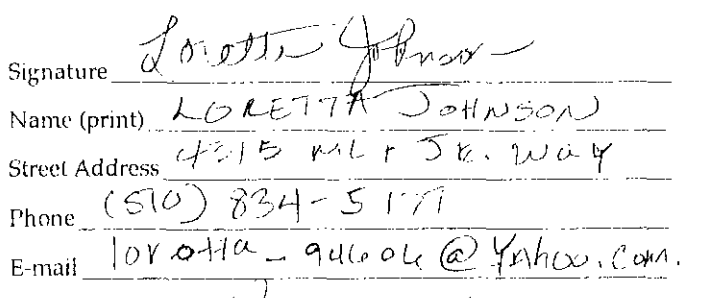 Signature Loretta Johnson
Name (print) LORETTA JOHNSON
Street Address 4315 MLK JR. Way
Phone (510) 834-5171
E-mail loretta_94606@Yahoo.com.